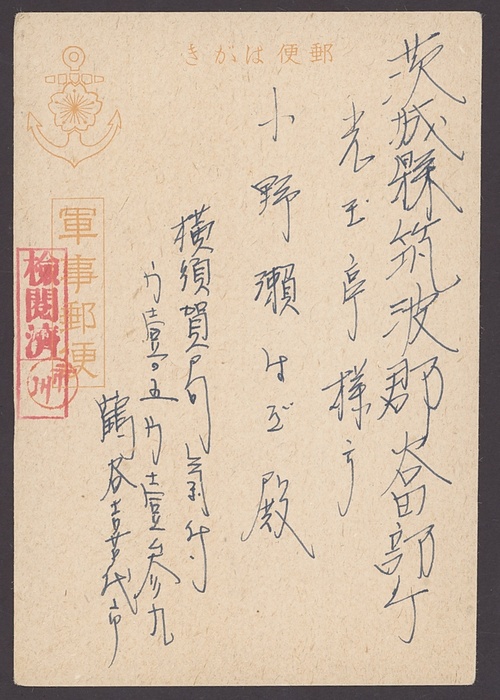 郵便はがき
茨城縣筑波郡谷田部町
光玉亭様方
小野瀬はな殿
横須賀局気付
ウ壹〇五ウ壹参九
鶴谷喜代市
軍事郵便
検閲済